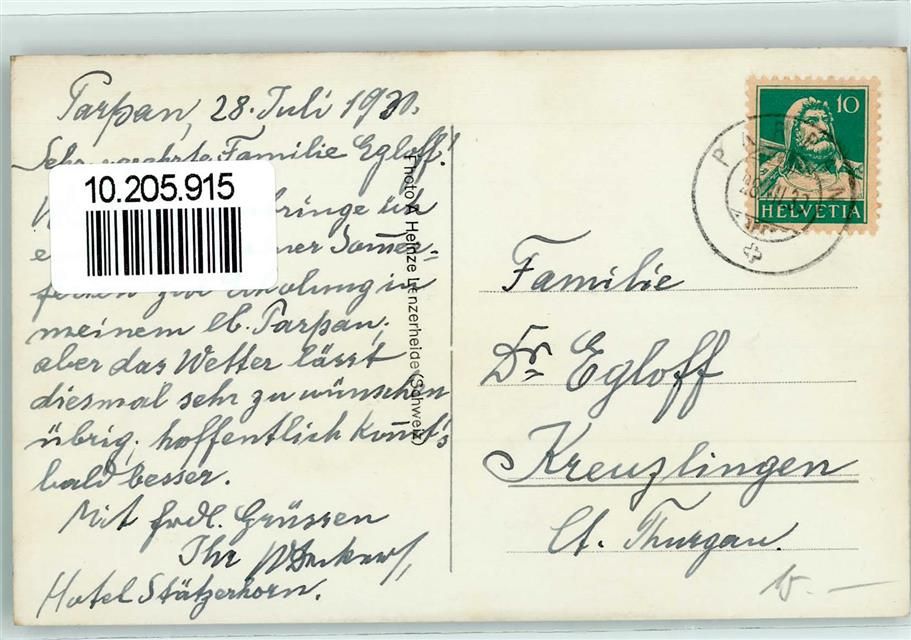 Parpan, 28. Juli 1930.
Sehr verehrte Familie Egloff!
10.205.915
bringe ich
Sommer-
ferien zur Erholung in
meinem lb. Parpan;
aber das Wetter lässt
diesmal sehr zu wünschen
übrig; hoffentlich kommt's
bald besser.
Mit frdl. Grüssen
Ihr
Hotel Stätzerhorn.
Photo A Heinze Lenzerheide (Schweiz)
10
HELVETIA
PARPAN
Familie
Dr. Egloff
Kreuzlingen
Ct. Thurgau.